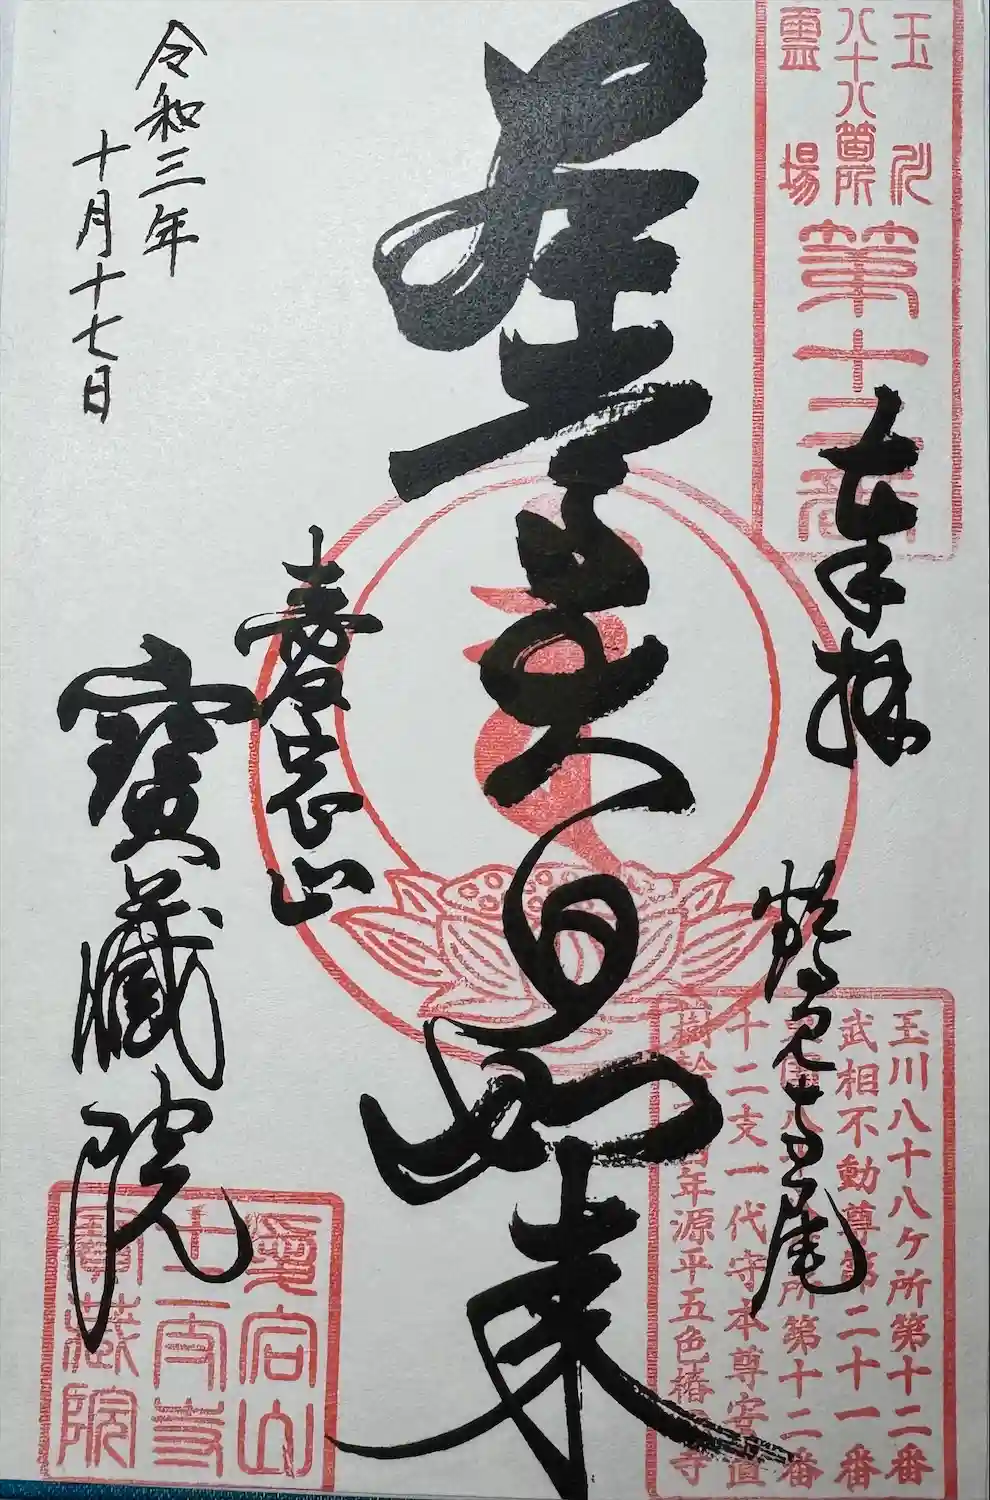 玉川
八十八箇所
靈場
第十二番
奉拝
鶴見寺尾
大日如来
愛宕山
寶藏院
令和三年
十月十七日
玉川八十八ケ所第十二番
武相不動尊第二十一番
所第十二番
十二支一代守本尊安置
樹齢
百年源平五色椿
寺
愛宕山
寳蔵院